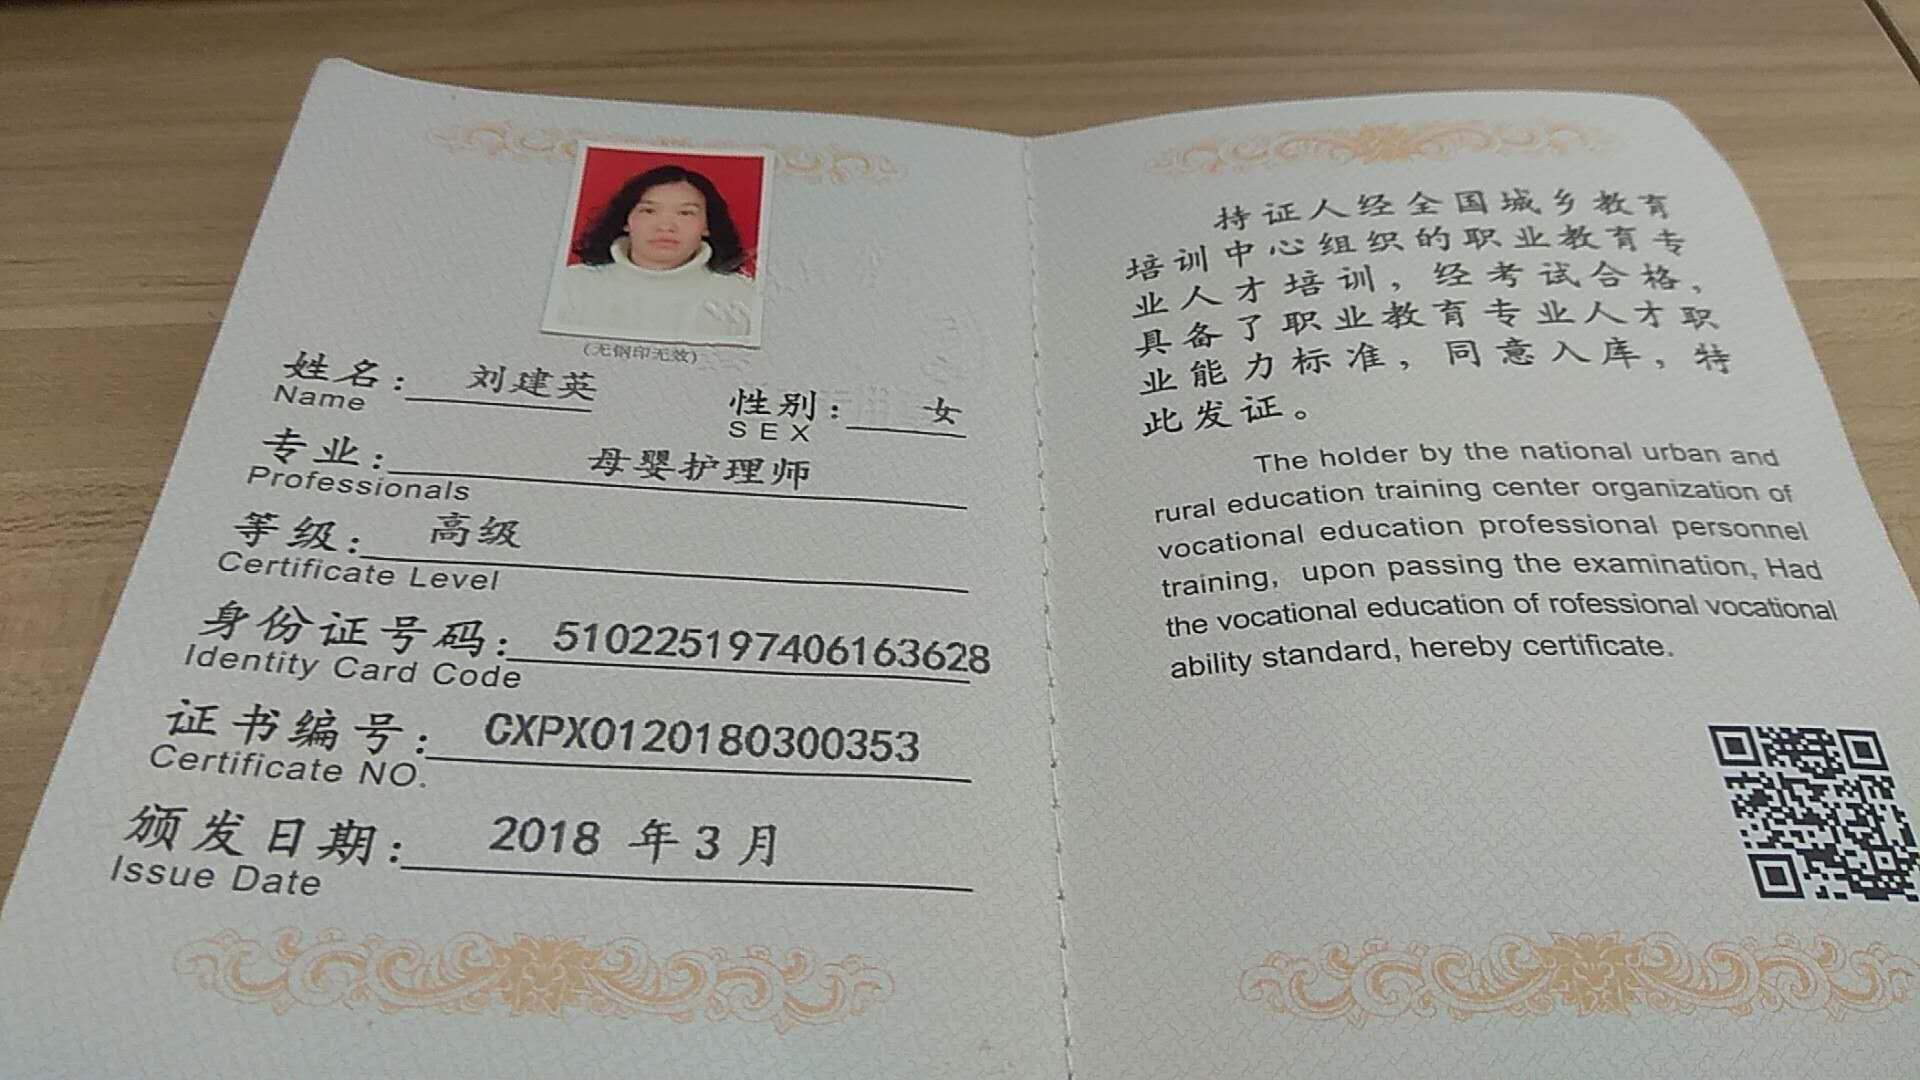 (无钢印无效)
姓名: 刘建英
Name
性别: 女
SEX
专业: 母婴护理师
Professionals
等级: 高级
Certificate Level
身份证号码: 510225197406163628
Identity Card Code
证书编号: CXPX0120180300353
Certificate NO.
颁发日期: 2018 年 3 月
Issue Date
持证人经全国城乡教育
培训中心组织的职业教育专
业人才培训，经考试合格，
具备了职业教育专业人才职
业能力标准，同意入库，特
此发证。
The holder by the national urban and
rural education training center organization of
vocational education professional personnel
training, upon passing the examination, Had
the vocational education of rofessional vocational
ability standard, hereby certificate.